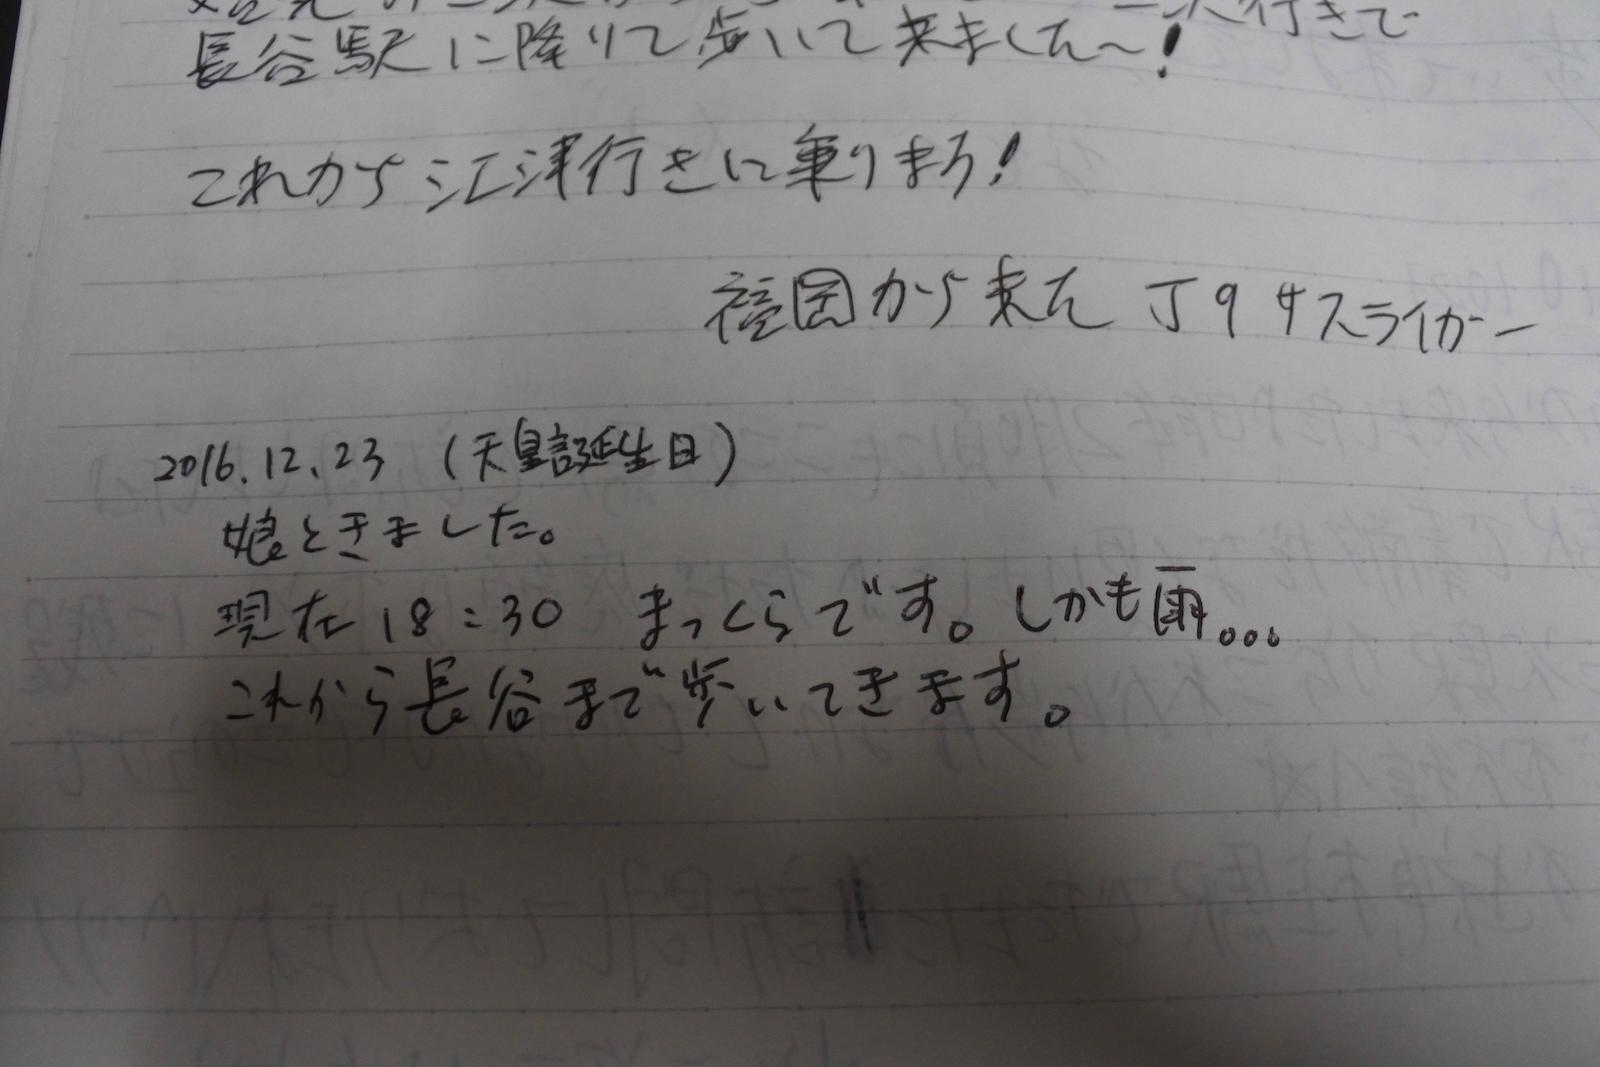 次行きで
長谷駅に降りて歩いて来ました〜!
これから江津行きに乗りまろ!
福岡から来た J9サスライガー
2016.12.23 (天皇誕生日)
娘ときました。
現在18:30 まっくらです。しかも雨...
これから長谷まで歩いてきます。